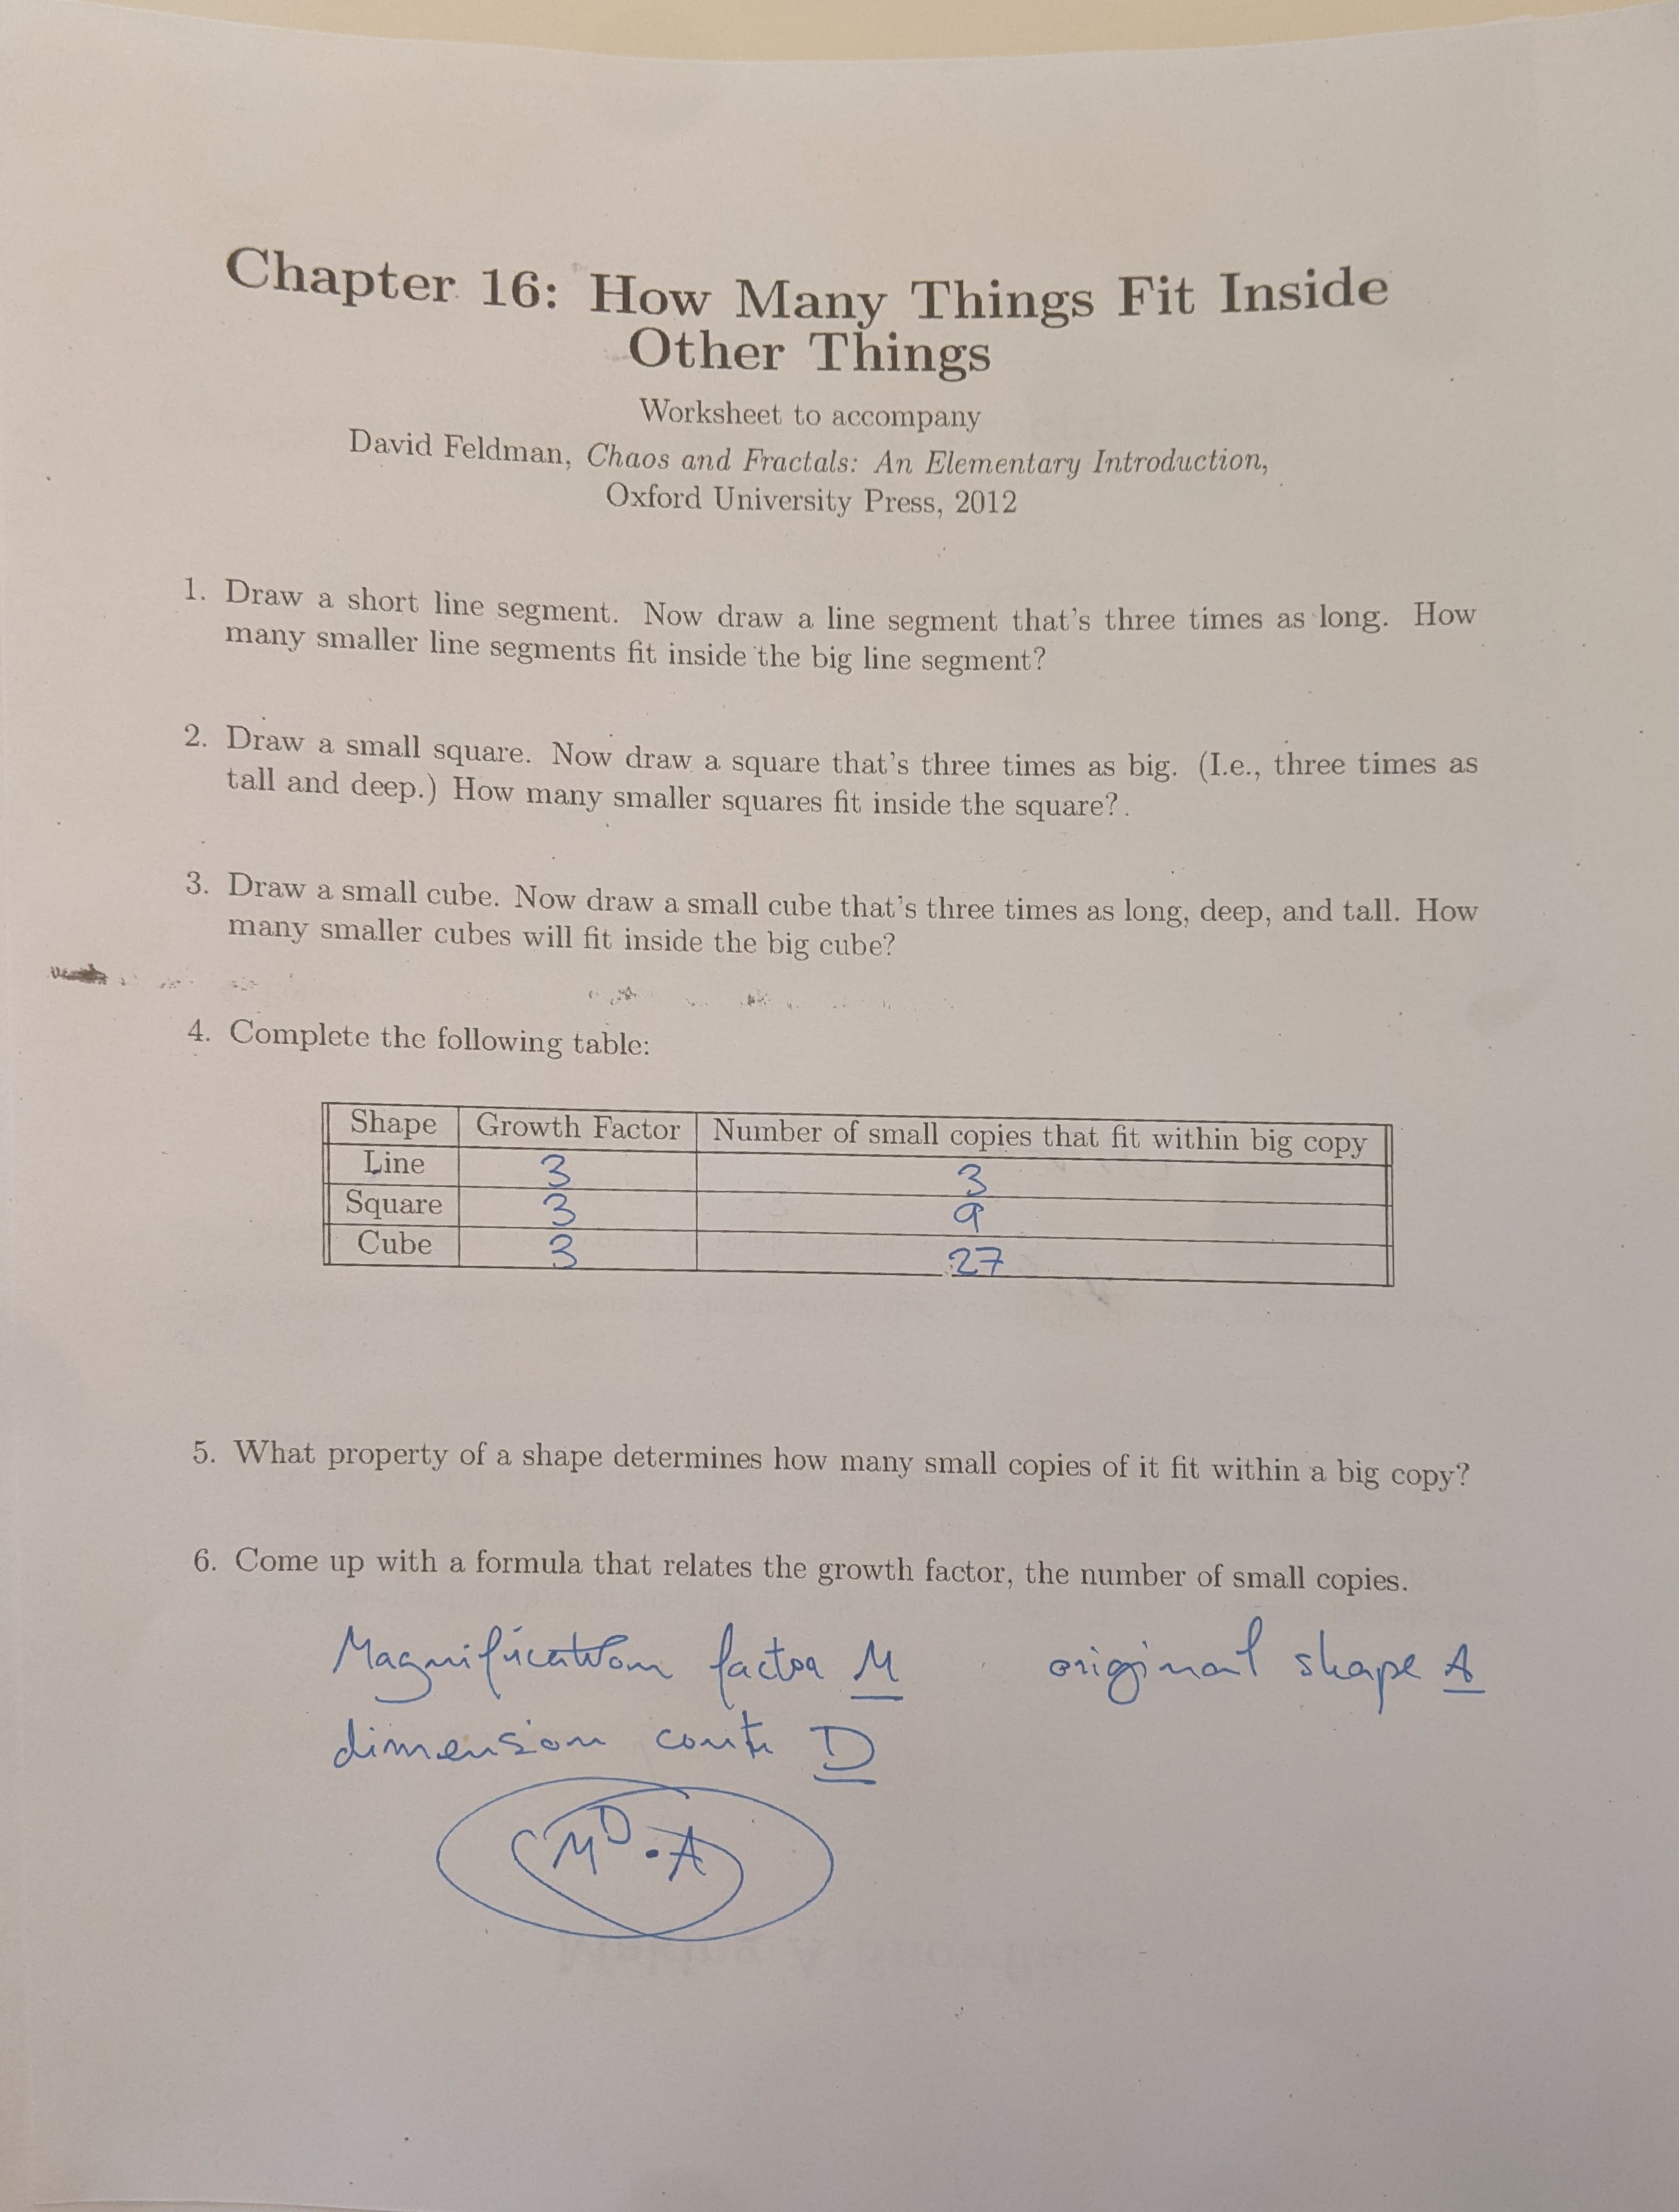 Chapter 16: How Many Things Fit Inside
Other Things
Worksheet to accompany
David Feldman, Chaos and Fractals: An Elementary Introduction,
Oxford University Press, 2012
1. Draw a short line segment. Now draw a line segment that's three times as long. How
many smaller line segments fit inside the big line segment?
2. Draw a small square. Now draw a square that's three times as big. (I.e., three times as
tall and deep.) How many smaller squares fit inside the square?
3. Draw a small cube. Now draw a small cube that's three times as long, deep, and tall. How
many smaller cubes will fit inside the big cube?
4. Complete the following table:
Shape Growth Factor Number of small copies that fit within big copy
Line 3 3
Square 3 9
Cube 3 27
5. What property of a shape determines how many small copies of it fit within a big copy?
6. Come up with a formula that relates the growth factor, the number of small copies.
Magnification factor M original shape A
dimension D
M^D · A